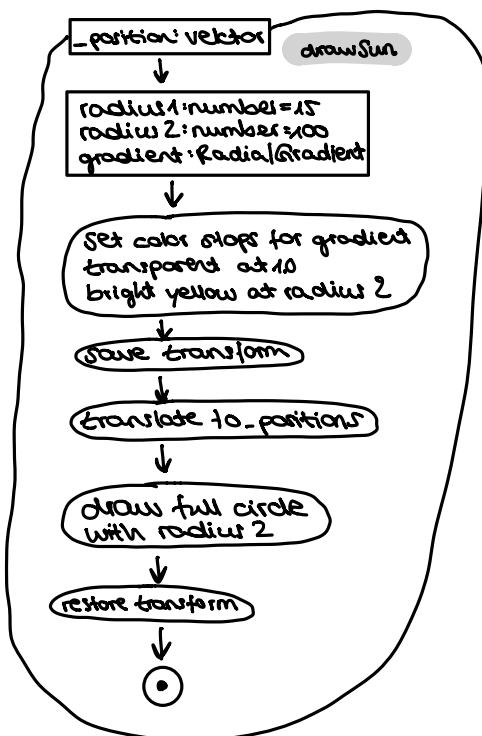 _position: vektor
drawSun
radius1:number=15
radius2:number=100
gradient:RadialGradient
set color stops for gradient
transparent at 10
bright yellow at radius 2
save transform
translate to_positions
draw full circle
with radius 2
restore transform